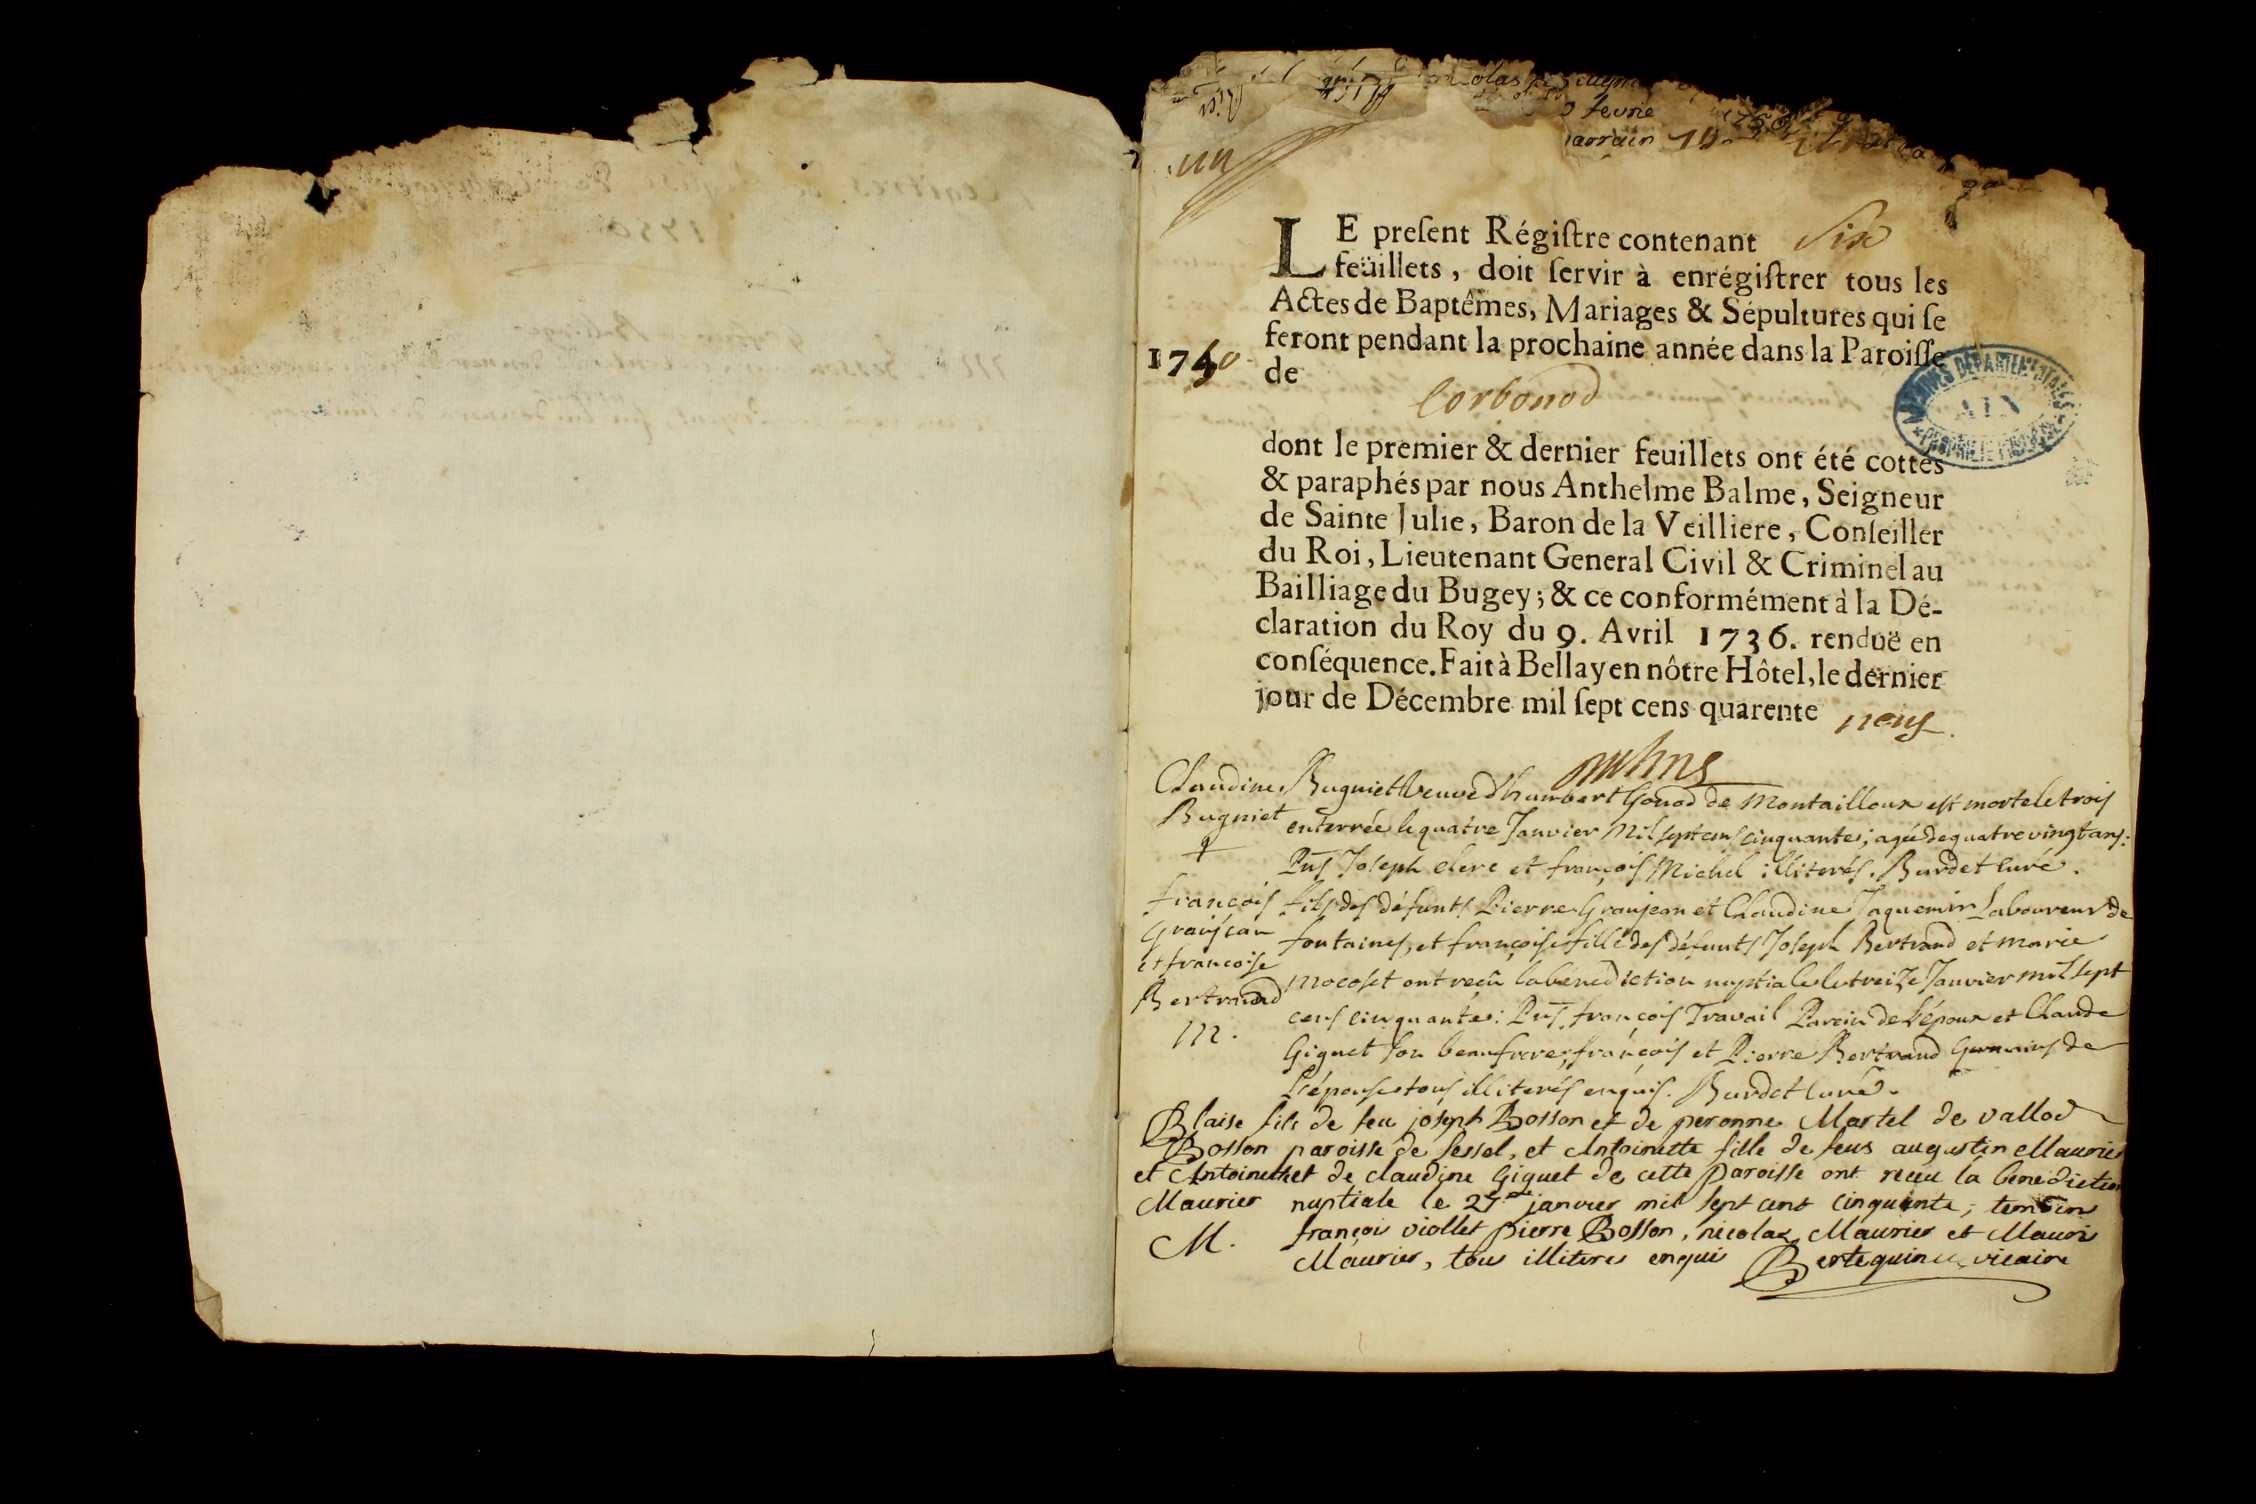 un
fevrie
parrain
LE present Régistre contenant Six
feüillets, doit servir à enrégistrer tous les
Actes de Baptêmes, Mariages & Sépultures qui se
feront pendant la prochaine année dans la Paroisse
1750
de
Corbonod
ARCHIVES DÉPARTEMENTALES
AIN
PROPRIÉTÉ PUBLIQUE
dont le premier & dernier feuillets ont été cottés
& paraphés par nous Anthelme Balme, Seigneur
de Sainte Julie, Baron de la Veilliere, Conseiller
du Roi, Lieutenant General Civil & Criminel au
Bailliage du Bugey; & ce conformément à la Dé-
claration du Roy du 9. Avril 1736. renduë en
conséquence. Fait à Bellay en nôtre Hôtel, le dernier
jour de Décembre mil sept cens quarente neuf.
Claudine Bugniet veuve d'humbert Gonod de Montailloux est morte le trois
Bugniet enterrée le quatre Janvier Mil sept cens cinquante; agée de quatre vingt ans:
Pñs Joseph clerc et françois Michel illiterés. Burdet Curé.
françois fils des défunts Pierre Granjean et Claudine Jaquemin Laboureur de
Granjean fontaines, et françoise fille des défunts Joseph Bertrand et marie
et francoise mocoset ont reçû la bénédiction nuptiale le treize Janvier mil sept
Bertrand cens cinquante: Pñs, françois Travail Parein de l'époux et Claude
M. Giguet son beaufrere, françois et Pierre Bertrand Germains de
L'épouse tous illiterés enquis. Burdet Curé.
Blaise fils de feu joseph Bosson et de peronne Martel de vallod
Bosson paroisse de sessel, et Antoinette fille de feus augustin Maurier
et Antoinette et de claudine Giguet de cette paroisse ont receu la benediction
Maurier nuptiale le 27me janvier mil sept cent cinquante; temoins
M. françois viollet pierre Bosson, nicolas Maurier et
Maurier, tous illiteres enquis vicaire